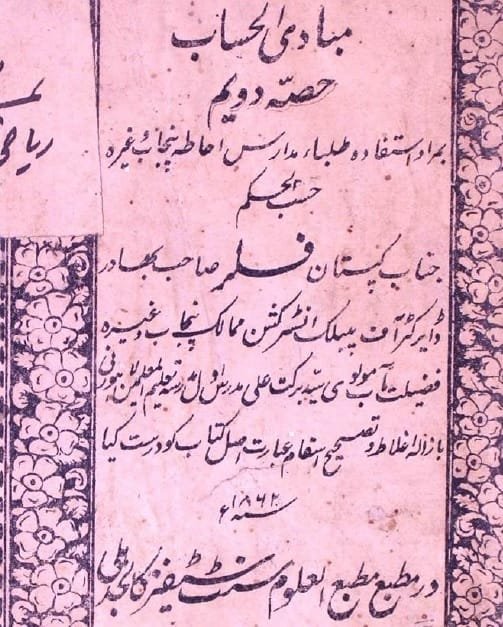 مبادی الحساب
حصہ دویم
بمراد استفادہ طلباء مدارس احاطہ پنجاب وغیرہ
حسب الحکم
جناب کپستان فلر صاحب بہادر
ڈایرکٹر آف پبلک انسٹرکشن ممالک پنجاب وغیرہ
فضیلت مآب مولوی سید برکت علی مدرس اول مدرسہ تعلیم المعلمین
بازالہ اغلاط و تصحیح اسقام عبارت اصل کتاب کو درست کیا
سنہ ۱۸۶۲ء
در مطبع مطبع العلوم سنٹ سٹیفنز کالج دہلی
ریاضی